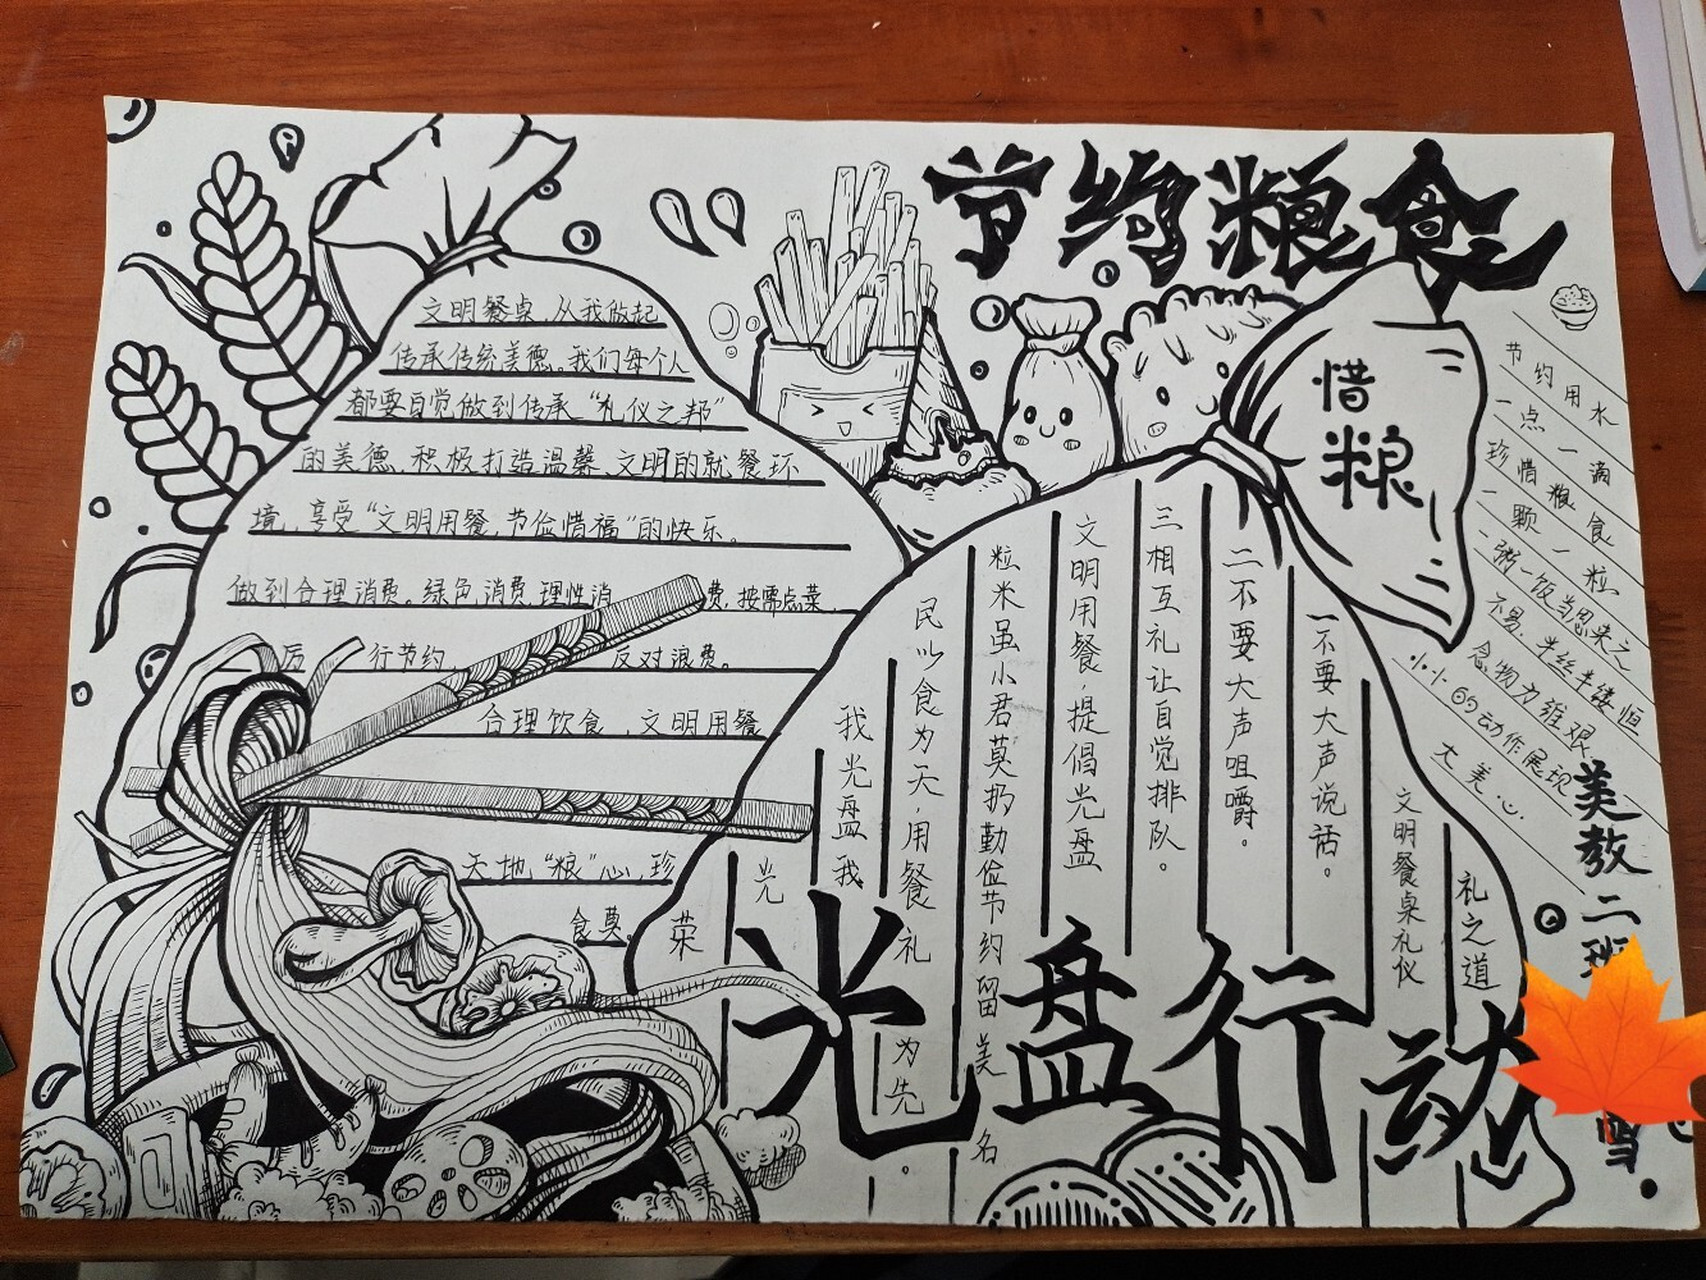 节约粮食
文明餐桌,从我做起
传承传统美德。我们每个人
都要自觉做到传承“礼仪之邦”
的美德,积极打造温馨、文明的就餐环
境,享受“文明用餐,节俭惜福”的快乐。
做到合理消费。绿色消费,理性消费,按需点菜,
厉行节约,反对浪费。
合理饮食,文明用餐
天地“粮”心,珍
食莫
惜粮
礼之道
文明餐桌礼仪
一不要大声说话。
二不要大声咀嚼。
三相互礼让自觉排队。
文明用餐,提倡光盘
粒米虽小君莫扔勤俭节约留美名
民以食为天,用餐礼为先。
我光盘我
光
荣
光盘行动
节约用水
一点一滴
珍惜粮食
一颗一粒
一粥一饭当思来之
不易,半丝半缕恒
念物力维艰
小小的动作展现
大美心.
美教二班
雪